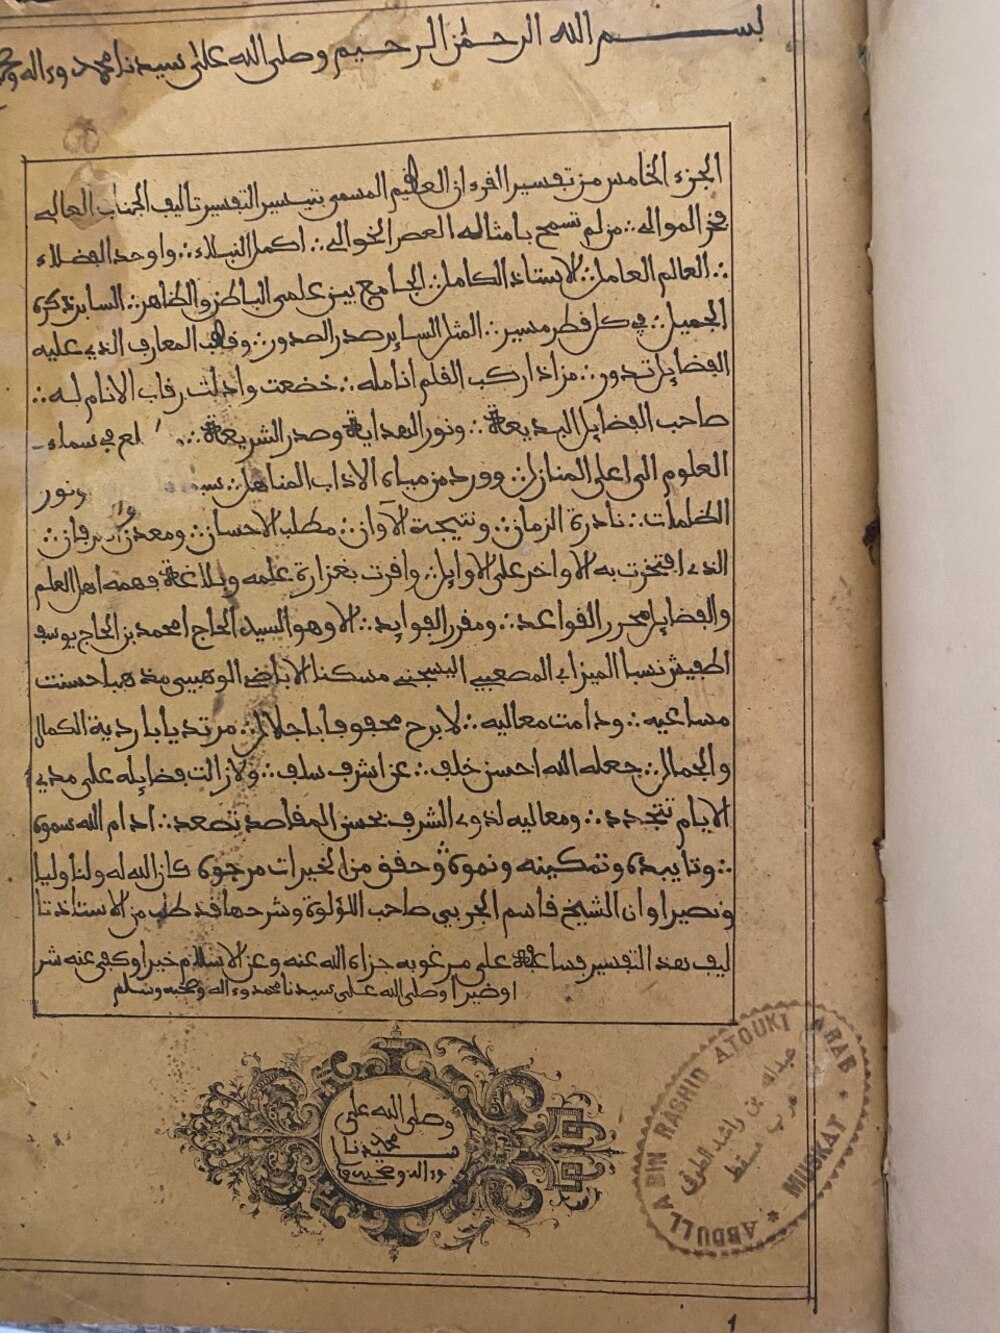 بسم الله الرحمن الرحيم وصلى الله على سيدنا محمد وءاله
الجزء الخامس من تفسير القرءان العظيم المسمى بتيسير التفسير تأليف الجناب العالي
فخر الموالي ∴ من لم تسمح بامثاله العصر الخوالي ∴ اكمل النبلاء ∴ واوحد الفضلاء
∴ العالم العامل ∴ الاستاذ الكامل ∴ الجامع بين علمي الباطن والظاهر ∴ الساير ذكره
الجميل ∴ في كل قطر مسير ∴ المثل الساير صدر الصدور ∴ وقطب المعارف الذي عليه
الفضايل تدور ∴ من اذا ركب القلم انامله ∴ خضعت واذلت رقاب الانام له ∴
صاحب الفضايل البديعة ∴ ونور الهداية وصدر الشريعة ∴ في سماء
العلوم الى اعلى المنازل ∴ وورد من مياه الاداب المناهل ∴ ونور
الظلمات ∴ نادرة الزمان ∴ ونتيجة الآوان ∴ مطلب الاحسان ∴ ومعدن
الذي افتخرت به الاواخر على الاوايل ∴ واقرت بغزارة علمه وبلاغة فهمه اهل العلم
والفضايل محرر القواعد ∴ ومقرر الفوايد ∴ الا وهو السيد الحاج امحمد بن الحاج يوسف
اطفيش نسبا الميزابي المصعبي اليسجني مسكنا الاباضي الوهبي مذهبا حسنت
مساعيه ∴ ودامت معاليه ∴ لا برح محفوفا باجلال ∴ مرتديا باردية الكمال
والجمال ∴ جعله الله احسن خلف ∴ عن اشرف سلف ∴ ولا زالت فضايله على مدى
الايام تتجدد ∴ ومعاليه لذوي الشرف بحسن المقاصد تصعد ∴ ادام الله سموه
∴ وتاييده وتمكينه ونموه وحقق من الخيرات مرجوه كان الله له ولنا وليا
ونصيرا وان الشيخ قاسم الجربي صاحب اللؤلوة وشرحها قد طلب من الاستاذ تا
ليف هذا التفسير فساعفه على مرغوبه جزاه الله عنه وعن الاسلام خيرا وكفى عنه شر
ا وضيرا وصلى الله على سيدنا محمد وءاله وصحبه وسلم
وصلى الله على
سيدنا محمد
وءاله وصحبه
ABDULLA BIN RASHID ATOUKI ARAB * MUSKAT *
عبدالله بن راشد
عرب مسقط
1